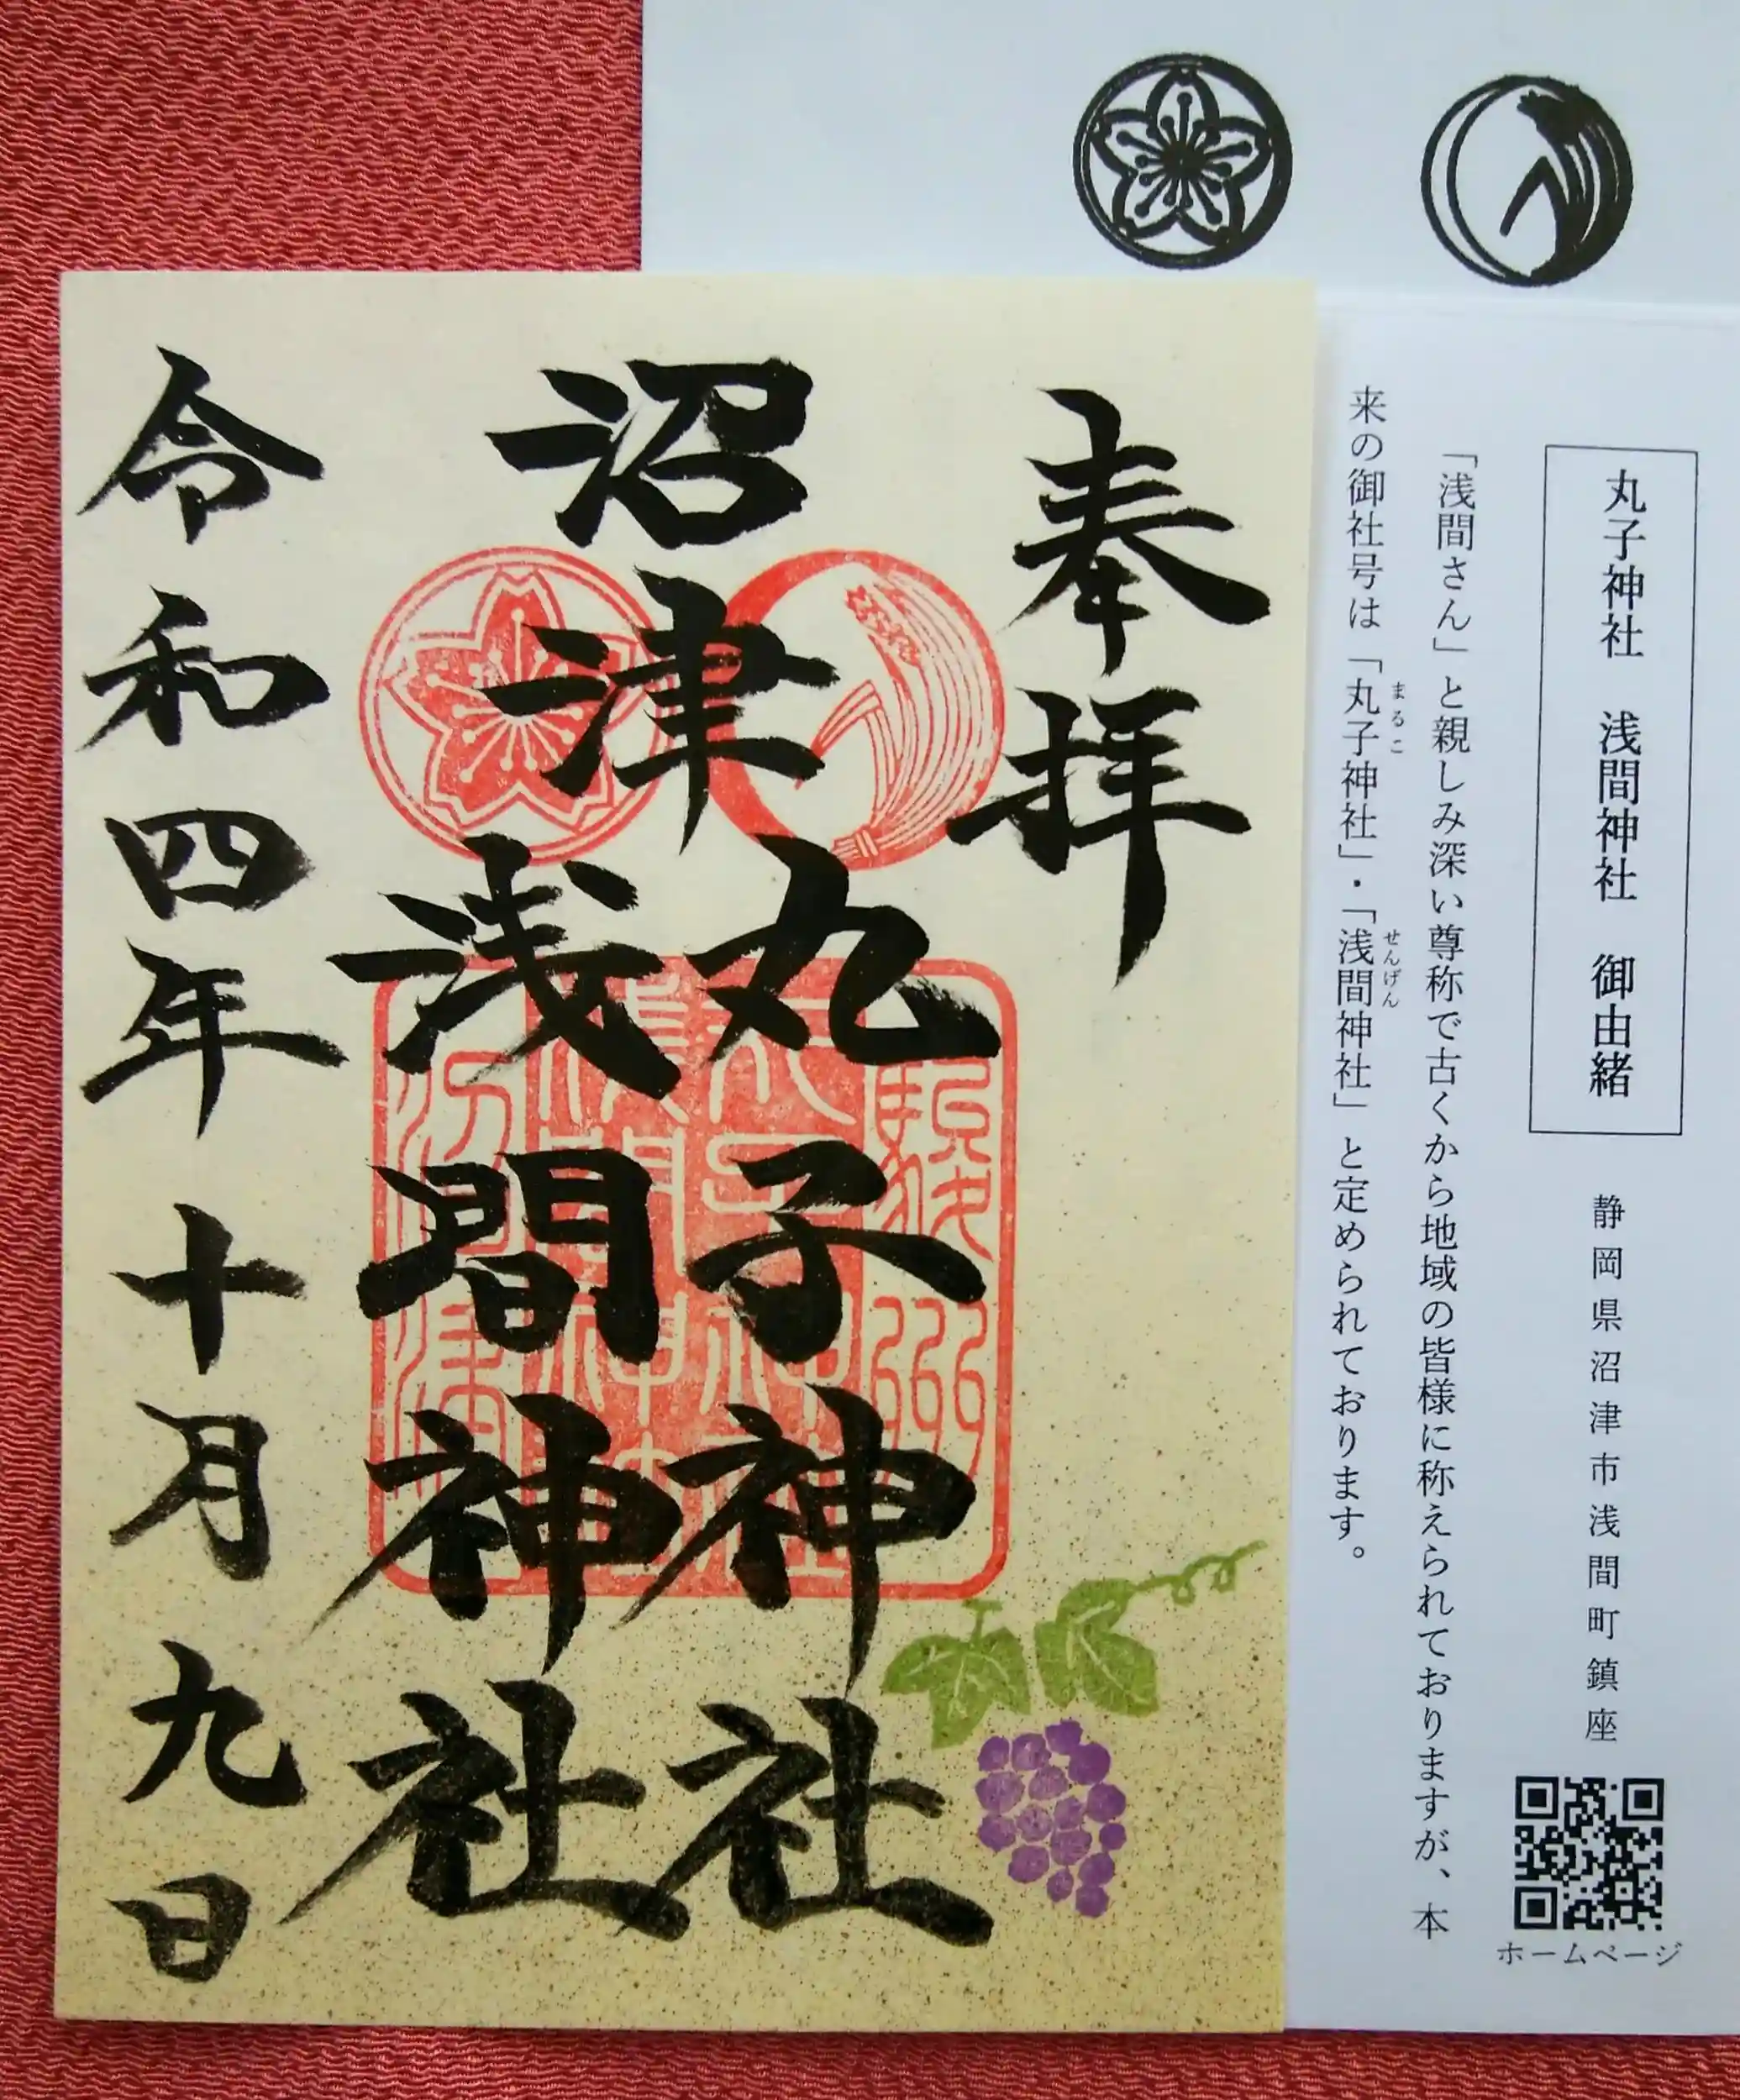 丸子神社 浅間神社 御由緒
静岡県沼津市浅間町鎮座
ホームページ
「浅間さん」と親しみ深い尊称で古くから地域の皆様に称えられておりますが、本
来の御社号は「丸子神社」・「浅間神社」と定められております。
まるこ
せんげん
奉拝
沼津
丸子神社
浅間神社
令和四年十月九日
駿州
丸子神社
浅間神社
沼津